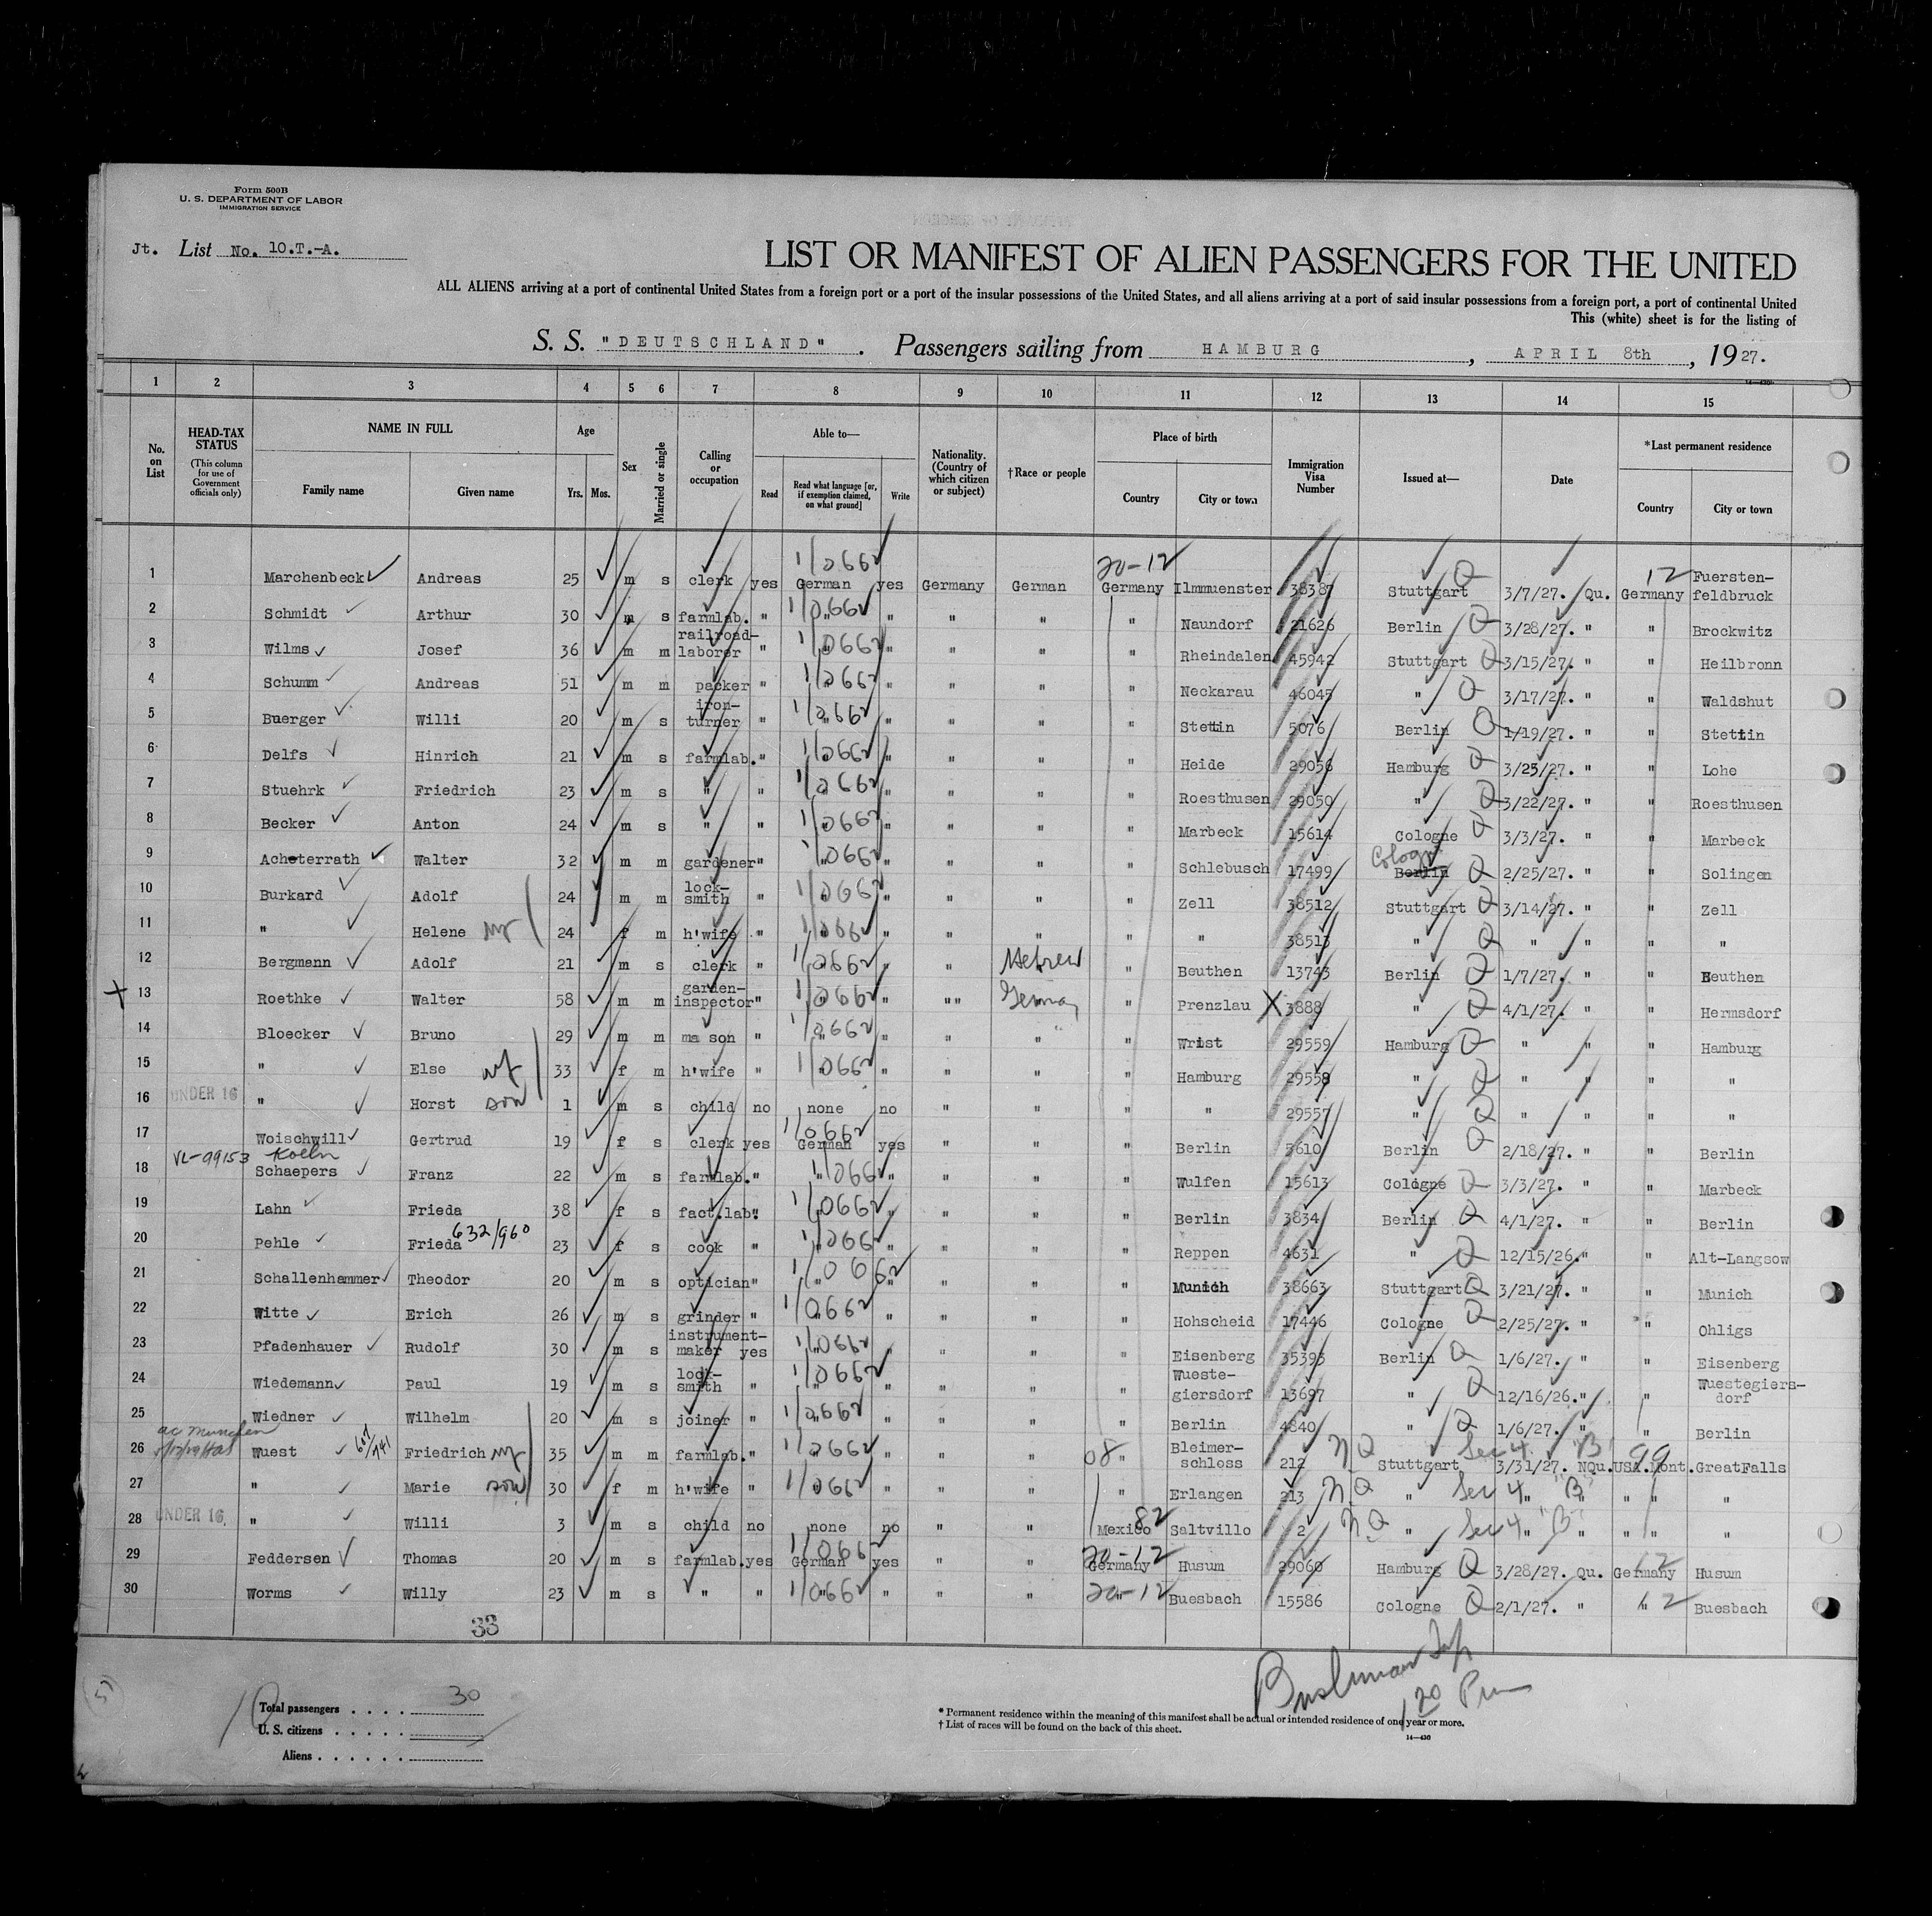 Form 500B
U. S. DEPARTMENT OF LABOR
IMMIGRATION SERVICE
Jt. List No. 10.T.-A.
LIST OR MANIFEST OF ALIEN PASSENGERS FOR THE UNITED
ALL ALIENS arriving at a port of continental United States from a foreign port or a port of the insular possessions of the United States, and all aliens arriving at a port of said insular possessions from a foreign port, a port of continental United
This (white) sheet is for the listing of
S. S. "DEUTSCHLAND". Passengers sailing from HAMBURG, APRIL 8th, 1927.
1 2 3 4 5 6 7 8 9 10 11 12 13 14 15
No. on List
HEAD-TAX STATUS (This column for use of Government officials only)
NAME IN FULL Family name Given name
Age Yrs. Mos.
Sex
Married or single
Calling or occupation
Able to— Read Read what language [or, if exemption claimed, on what ground] Write
Nationality. (Country of which citizen or subject)
†Race or people
Place of birth Country City or town
Immigration Visa Number
Issued at—
Date
*Last permanent residence Country City or town
1 Marchenbeck Andreas 25 m s clerk yes German yes Germany German Germany Ilmmuenster 38387 Stuttgart Q 3/7/27. Qu. Germany Fuersten-feldbruck
2 Schmidt Arthur 30 m s farmlab. " " " " " " Naundorf 21626 Berlin Q 3/28/27. " " Brockwitz
3 Wilms Josef 36 m m railroad-laborer " " " " " " Rheindalen 45942 Stuttgart Q 3/15/27. " " Heilbronn
4 Schumm Andreas 51 m m packer " " " " " " Neckarau 46045 " Q 3/17/27. " " Waldshut
5 Buerger Willi 20 m s iron-turner " " " " " " Stettin 5076 Berlin Q 1/19/27. " " Stettin
6 Delfs Hinrich 21 m s farmlab. " " " " " " Heide 29056 Hamburg Q 3/25/27. " " Lohe
7 Stuehrk Friedrich 23 m s " " " " " " " Roesthusen 29050 " Q 3/22/27. " " Roesthusen
8 Becker Anton 24 m s " " " " " " " Marbeck 15614 Cologne Q 3/3/27. " " Marbeck
9 Achoterrath Walter 32 m m gardener " " " " " " Schlebusch 17499 Berlin Cologn Q 2/25/27. " " Solingen
10 Burkard Adolf 24 m m lock-smith " " " " " " Zell 38512 Stuttgart Q 3/14/27. " " Zell
11 " Helene wf 24 f m h'wife " " " " " " " 38513 " Q " " " "
12 Bergmann Adolf 21 m s clerk " " " " Hebrew " Beuthen 13743 Berlin Q 1/7/27. " " Beuthen
13 Roethke Walter 58 m m garden-inspector " " " "" German " Prenzlau X 3888 " Q 4/1/27. " " Hermsdorf
14 Bloecker Bruno 29 m m mason " " " " " " Wrist 29559 Hamburg Q " " " Hamburg
15 " Else wf 33 f m h'wife " " " " " " Hamburg 29558 " Q " " " "
16 UNDER 16 " Horst son 1 m s child no none no " " " " 29557 " Q " " " "
17 Woischwill Gertrud 19 f s clerk yes German yes " " " Berlin 5610 Berlin Q 2/18/27. " " Berlin
VL-99153 Koeln
18 Schaepers Franz 22 m s farmlab. " " " " " " Wulfen 15613 Cologne Q 3/3/27. " " Marbeck
19 Lahn Frieda 38 f s fact.lab. " " " " " " Berlin 3834 Berlin Q 4/1/27. " " Berlin
20 Pehle Frieda 632/960 23 f s cook " " " " " " Reppen 4631 " Q 12/15/26. " " Alt-Langsow
21 Schallenhammer Theodor 20 m s optician " " " " " " Munich 38663 Stuttgart Q 3/21/27. " " Munich
22 Witte Erich 26 m s grinder " " " " " " Hohscheid 17446 Cologne Q 2/25/27. " " Ohligs
23 Pfadenhauer Rudolf 30 m s instrument-maker yes " " " " " Eisenberg 35393 Berlin Q 1/6/27. " " Eisenberg
24 Wiedemann Paul 19 m s lock-smith " " " " " " Wueste-giersdorf 13697 " Q 12/16/26. " " Wuestegiers-dorf
25 Wiedner Wilhelm 20 m s joiner " " " " " " Berlin 4840 " Q 1/6/27. " " Berlin
26 Wuest 607/741 Friedrich wf 35 m m farmlab. " " " " " 08 " Bleimer-schloss 212 NQ Stuttgart Sec 4 "B" 3/31/27. NQu. USA.Mont. 99 GreatFalls
27 " Marie son 30 f m h'wife " " " " " " Erlangen 213 NQ " Sec 4 "B" " " " "
28 UNDER 16. " Willi 3 m s child no none no " " Mexico 82 Saltvillo 2 NQ " Sec 4 "B" " " " "
29 Feddersen Thomas 20 m s farmlab. yes German yes " " Germany 20-12 Husum 29060 Hamburg Q 3/28/27. Qu. Germany 12 Husum
30 Worms Willy 23 m s " " " " " " " 20-12 Buesbach 15586 Cologne Q 2/1/27. " " 12 Buesbach
33
Total passengers . . . . 30
U. S. citizens . . . . .
Aliens . . . . . .
* Permanent residence within the meaning of this manifest shall be actual or intended residence of one year or more.
† List of races will be found on the back of this sheet.
14—430